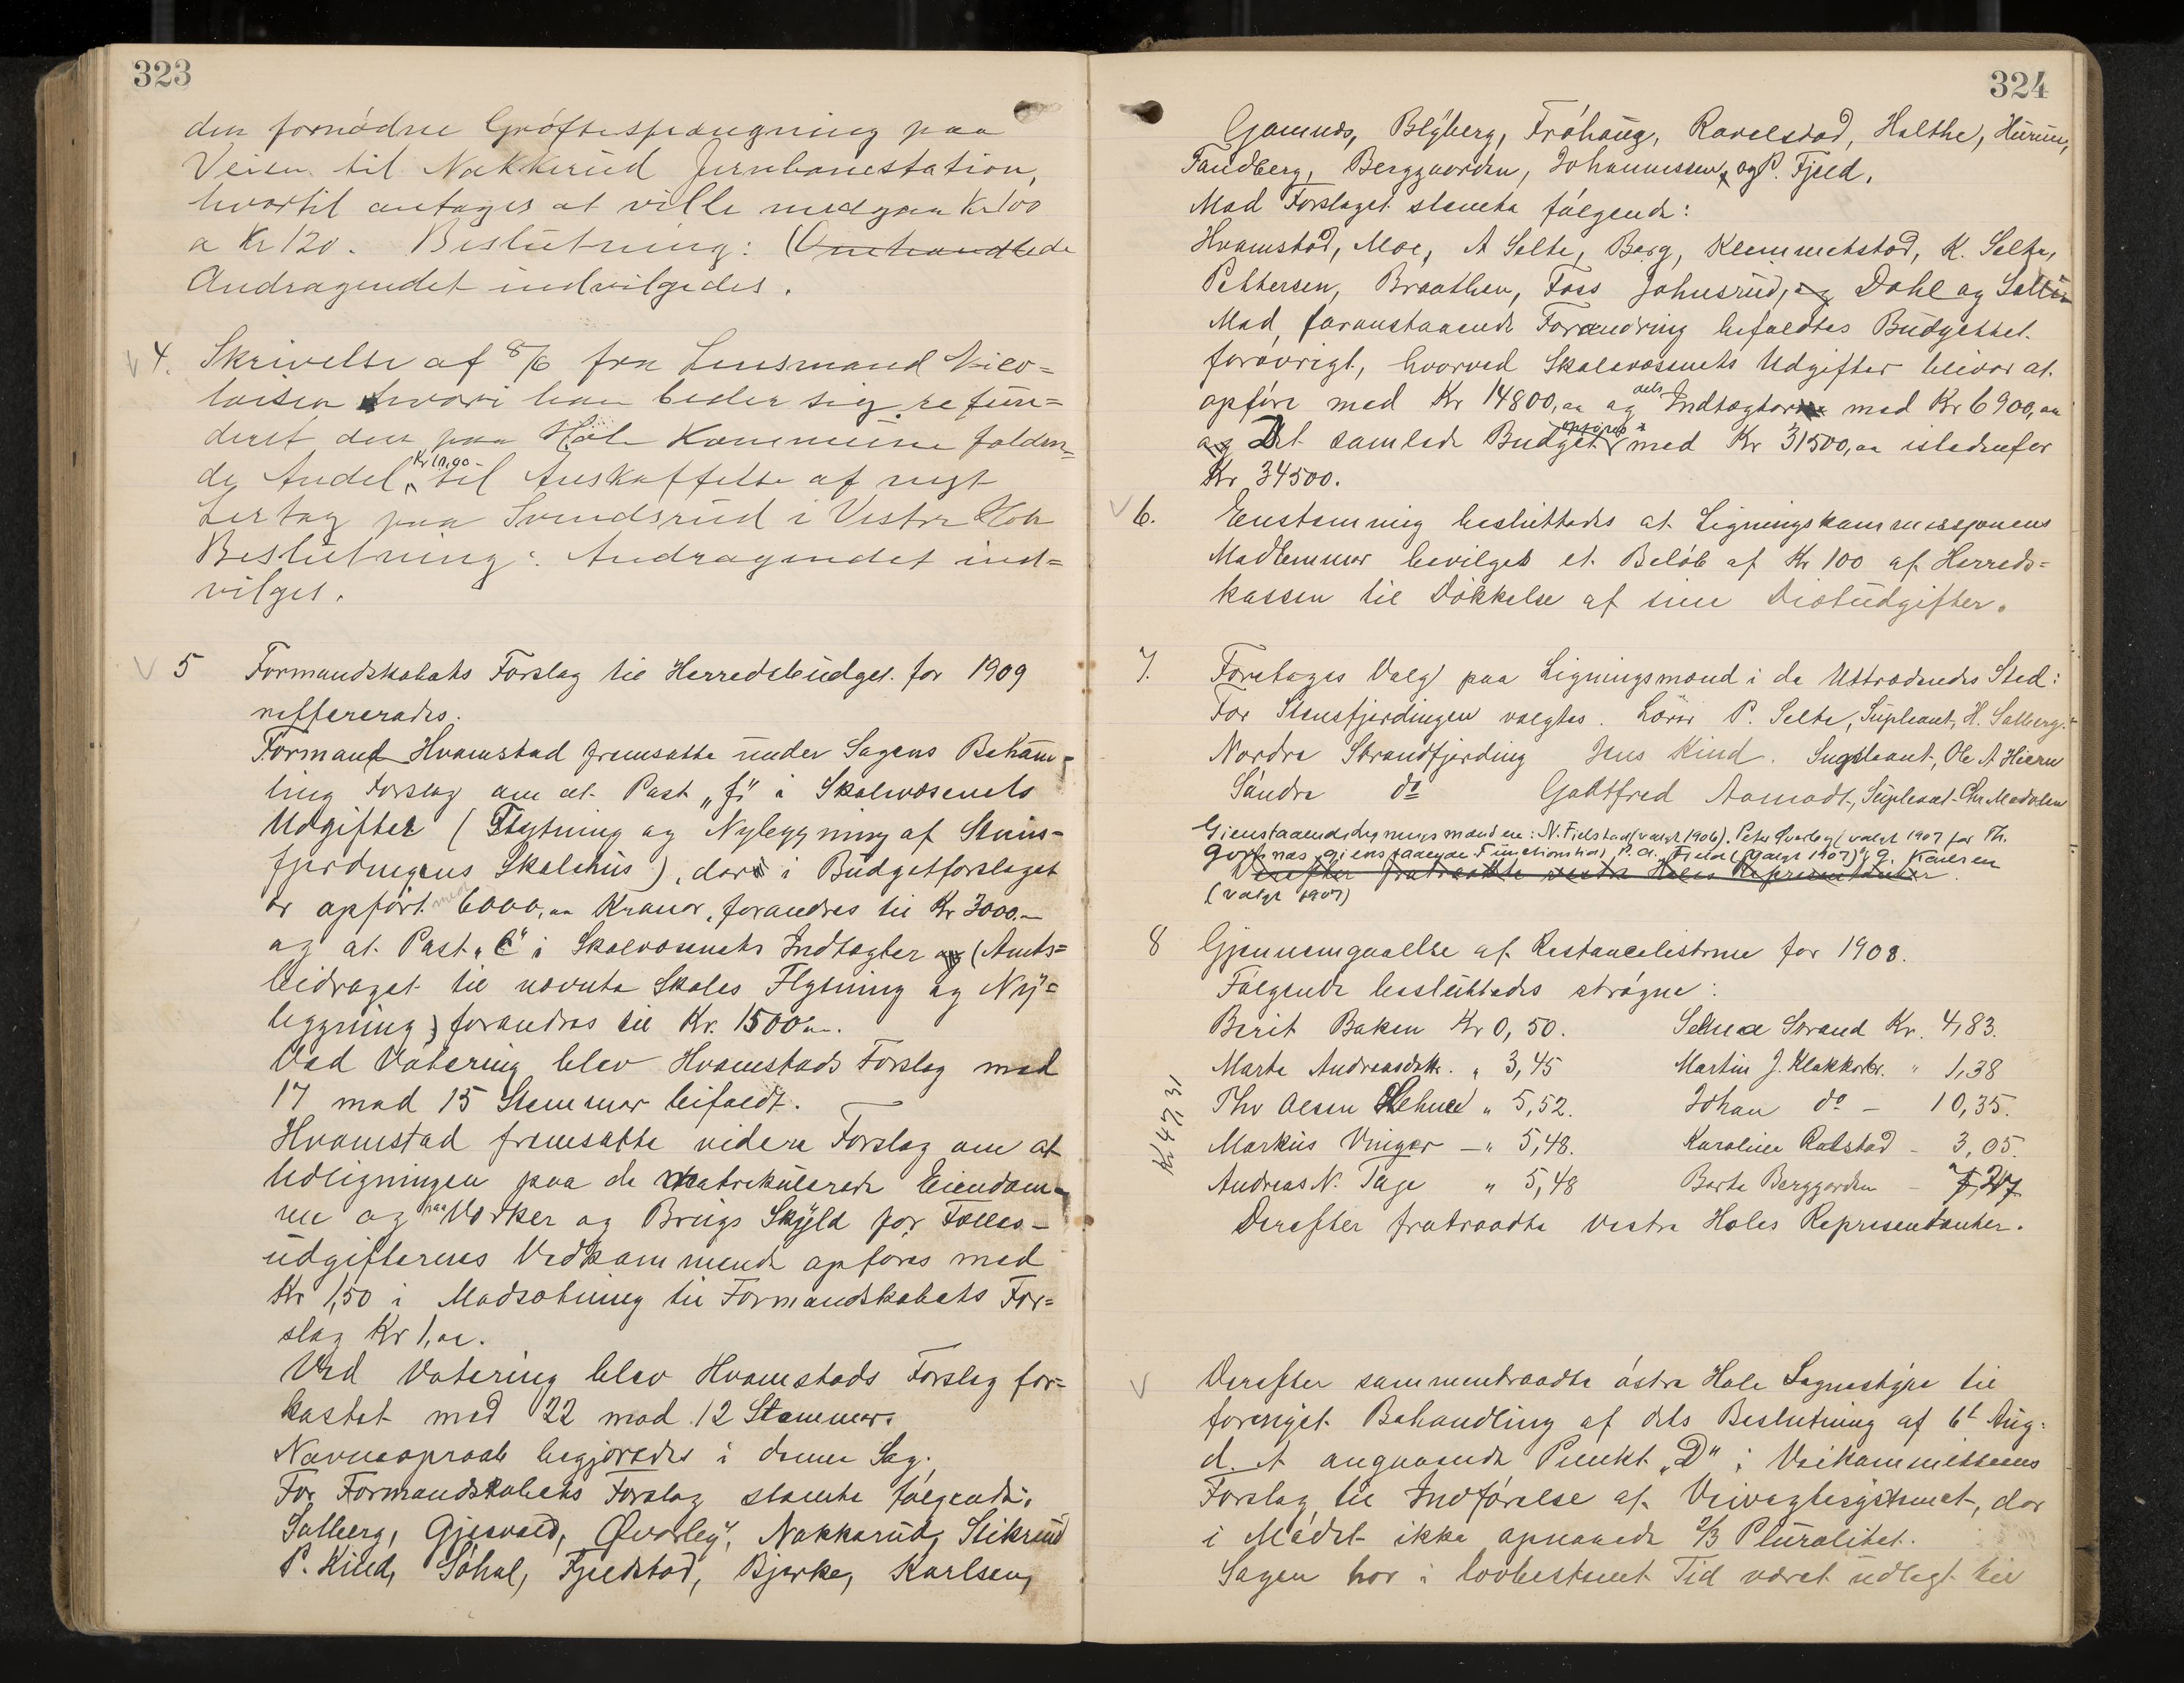 323
den fornødne Grøftesprængning paa
Veien til Nakkerud Jernbanestation,
hvortil antages at ville medgaa Kr 100
a Kr 120. Beslutning: Omhandlede
Andragendet indvilgedes.
4. Skrivelse af 8/6 fra Lensmand Nico=
laisen hvori han beder sig refun=
deret den paa Hole Kommune falden=
de Andel, til Anskaffelse af nyt
paa Svendsrud i Vestre Hole
Beslutning: Andragendet ind=
vilget.
5 Formandskabets Forslag til Herredsbudget for 1909
reffereredes.
Formand Hvamstad fremsatte under Sagens Behand-
ling Forslag om at Post „f" i Skolevæsenets
Udgifter (Flytning og Nylægning af Steins=
fjerdingens Skolehus), der i Budgetforslaget
er opført med 6000,00 Kroner, forandres til Kr 3000.-
og at Post „C" i Skolevæsenets Indtægter og (Amts=
bidraget til nævnte Skoles Flytning og Ny=
lægning) forandres til Kr. 1500,00.
Ved Votering blev Hvamstads Forslag med
17 mod 15 Stemmer bifaldt.
Hvamstad fremsatte videre Forslag om at
Udligningen paa de matrikulerede Eiendom-
me og paa Værker og Brugs Skyld for Fælles-
udgifternes Vedkommende opføres med
Kr 1,50 i Modsætning til Formandskabets For=
slag Kr 1,00.
Ved Votering blev Hvamstads Forslag for=
kastet med 22 mod 12 Stemmer.
Navneopraab begjæredes i denne Sag.
For Formandskabets Forslag stemte følgende:
Solberg, Gjesvold, Øverby, Nakkerud, Stikrud
P. Kind, Søhol, Fjeldstad, Bjerke, Karlsen,
324
Gomnes, Blyberg, Frøhaug, Ravelstad, Holthe, Hurum,
Tandberg, Berggaarden, Johannessen, og P. Fjeld.
Mod Forslaget stemte følgende:
Hvamstad, Moe, A Selte, Berg, Klemmetstad, K. Selte,
Pettersen, Braathen, Foss Johnsrud, og Dahl og
Med foranstaaende Forandring bifaldtes Budgettet
forøvrigt, hvorved Skolevæsenets Udgifter bliver at
opføre med Kr 14800,00 og dets Indtægter med Kr 6900,00
og Det samlede Budget opføres med Kr 31500,00 istedenfor
Kr 34500.
6. Enstemmig besluttedes at Ligningskommissionens
Medlemmer bevilges et Beløb af Kr 100 af Herreds=
kassen til Dækkelse af sine Diætudgifter.
7. Foretages Valg paa Ligningsmænd i de Uttrædendes Sted:
For Stensfjerdingen valgtes. Lærer P. Selte, Supleant, H. Solberg.
Nordre Strandfjerding Jens Kind. Supleant, Ole A Hieren
Søndre do Gudtfred Aamodt, Supleant Chr Modalen
Gienstaaende Ligningsmænd ere: N. Fjelstad (valgt 1906). Peter Øverby (valgt 1907 for Th.
Gomnes gienstaaende Functionstid), P. A. Fjeld (valgt 1907) G. Kaulsen
Derefter fratraadte vestre Holes Representanter.
(valgt 1907)
8 Gjennemgaaelse af Restancelisterne for 1908.
Følgende besluttedes strøgne:
Berit Baken Kr 0,50. Selma Strand Kr. 4,83.
Marte Andreasdtr. „ 3,45 Martin J. Klokkerbr. „ 1,38
Thv Olsen „ 5,52. Johan do - 10,35.
Markus Vinger - „ 5,48. Karoline Rolstad - 3,05.
Andreas N. Tage „ 5,48 Berte Berggarden -
Kr 47,31
Derefter fratraadte vestre Holes Representanter.
Derefter sammentraadte østre Hole Sognestyre til
fornyet Behandling af dets Beslutning af 6t Aug.
d. A angaaende Punkt „D" i Veikommitteens
Forslag til Indførelse af Veivagtsystemet, der
i Mødet ikke opnaaede 2/3 Pluralitet.
Sagen har i lovbestemt Tid været udlagt til